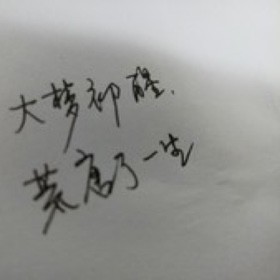 大梦初醒.
荒唐了一生